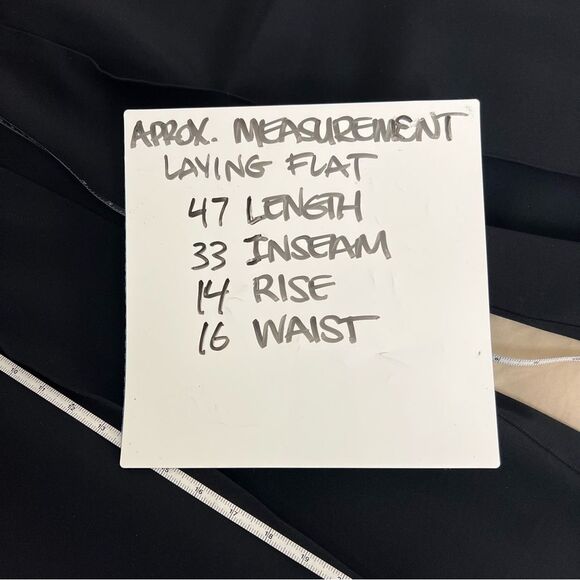 APROX. MEASUREMENT
LAYING FLAT
47 LENGTH
33 INSEAM
14 RISE
16 WAIST